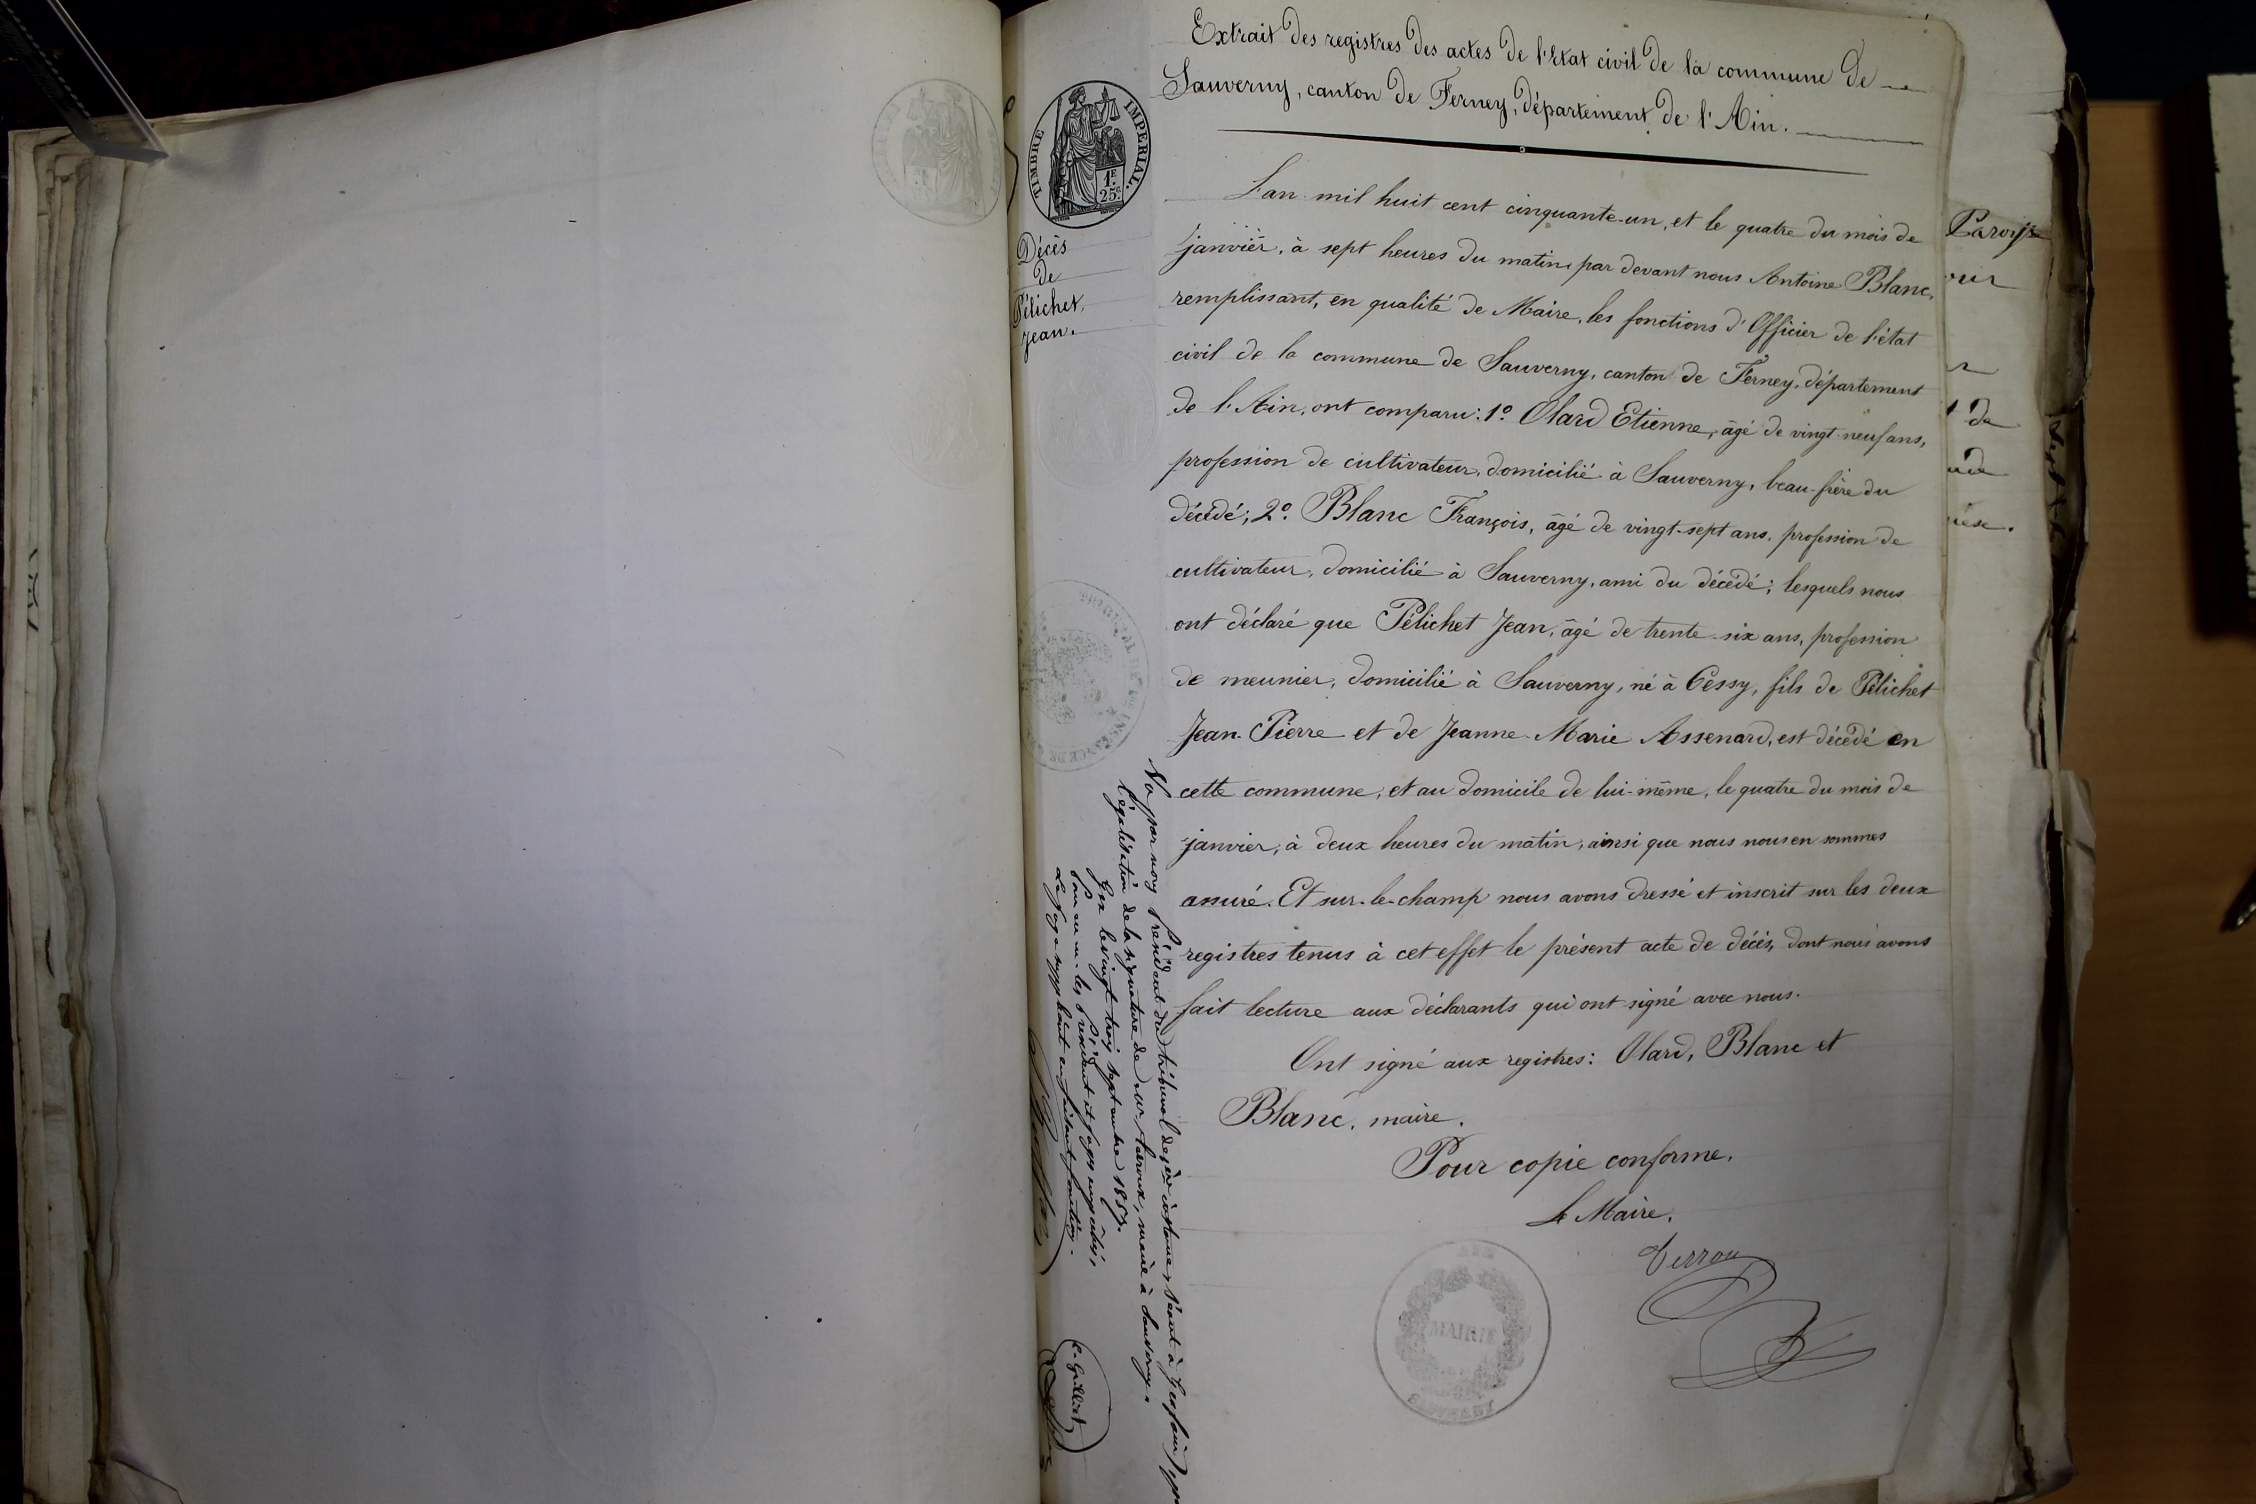 Extrait des registres des actes de l'Etat civil de la commune de
Sauverny, canton de Ferney, département de l'Ain.
TIMBRE IMPERIAL.
1F.
25c.
Décès
de
Pélichet,
Jean.
L'an mil huit cent cinquante-un, et le quatre du mois de
janvier, à sept heures du matin, par devant nous Antoine Blanc,
remplissant, en qualité de Maire, les fonctions d'Officier de l'état
civil de la commune de Sauverny, canton de Ferney, département
de l'Ain, ont comparu: 1º Olard Etienne, âgé de vingt-neuf ans,
profession de cultivateur, domicilié à Sauverny, beau-frère du
décédé; 2º. Blanc François, âgé de vingt-sept ans, profession de
cultivateur, domicilié à Sauverny, ami du décédé; lesquels nous
ont déclaré que Pélichet Jean, âgé de trente-six ans, profession
de meunier, domicilié à Sauverny, né à Cessy, fils de Pélichet
Jean-Pierre et de Jeanne-Marie Assenard, est décédé en
cette commune, et au domicile de lui-même, le quatre du mois de
janvier, à deux heures du matin, ainsi que nous nous en sommes
assuré. Et sur-le-champ nous avons dressé et inscrit sur les deux
registres tenus à cet effet le présent acte de décès, dont nous avons
fait lecture aux déclarants qui ont signé avec nous.
Ont signé aux registres: Olard, Blanc et
Blanc, maire.
Pour copie conforme.
Le Maire,
MAIRIE
Vu par nous Président du tribunal de 1ère instance séant à Gex pour
légalisation de la signature de Mr. maire à Sauverny.
Gex le vingt trois septembre 1857.
Pour Mr. le Président et juges empêchés,
Le juge suppléant en faisant fonction.